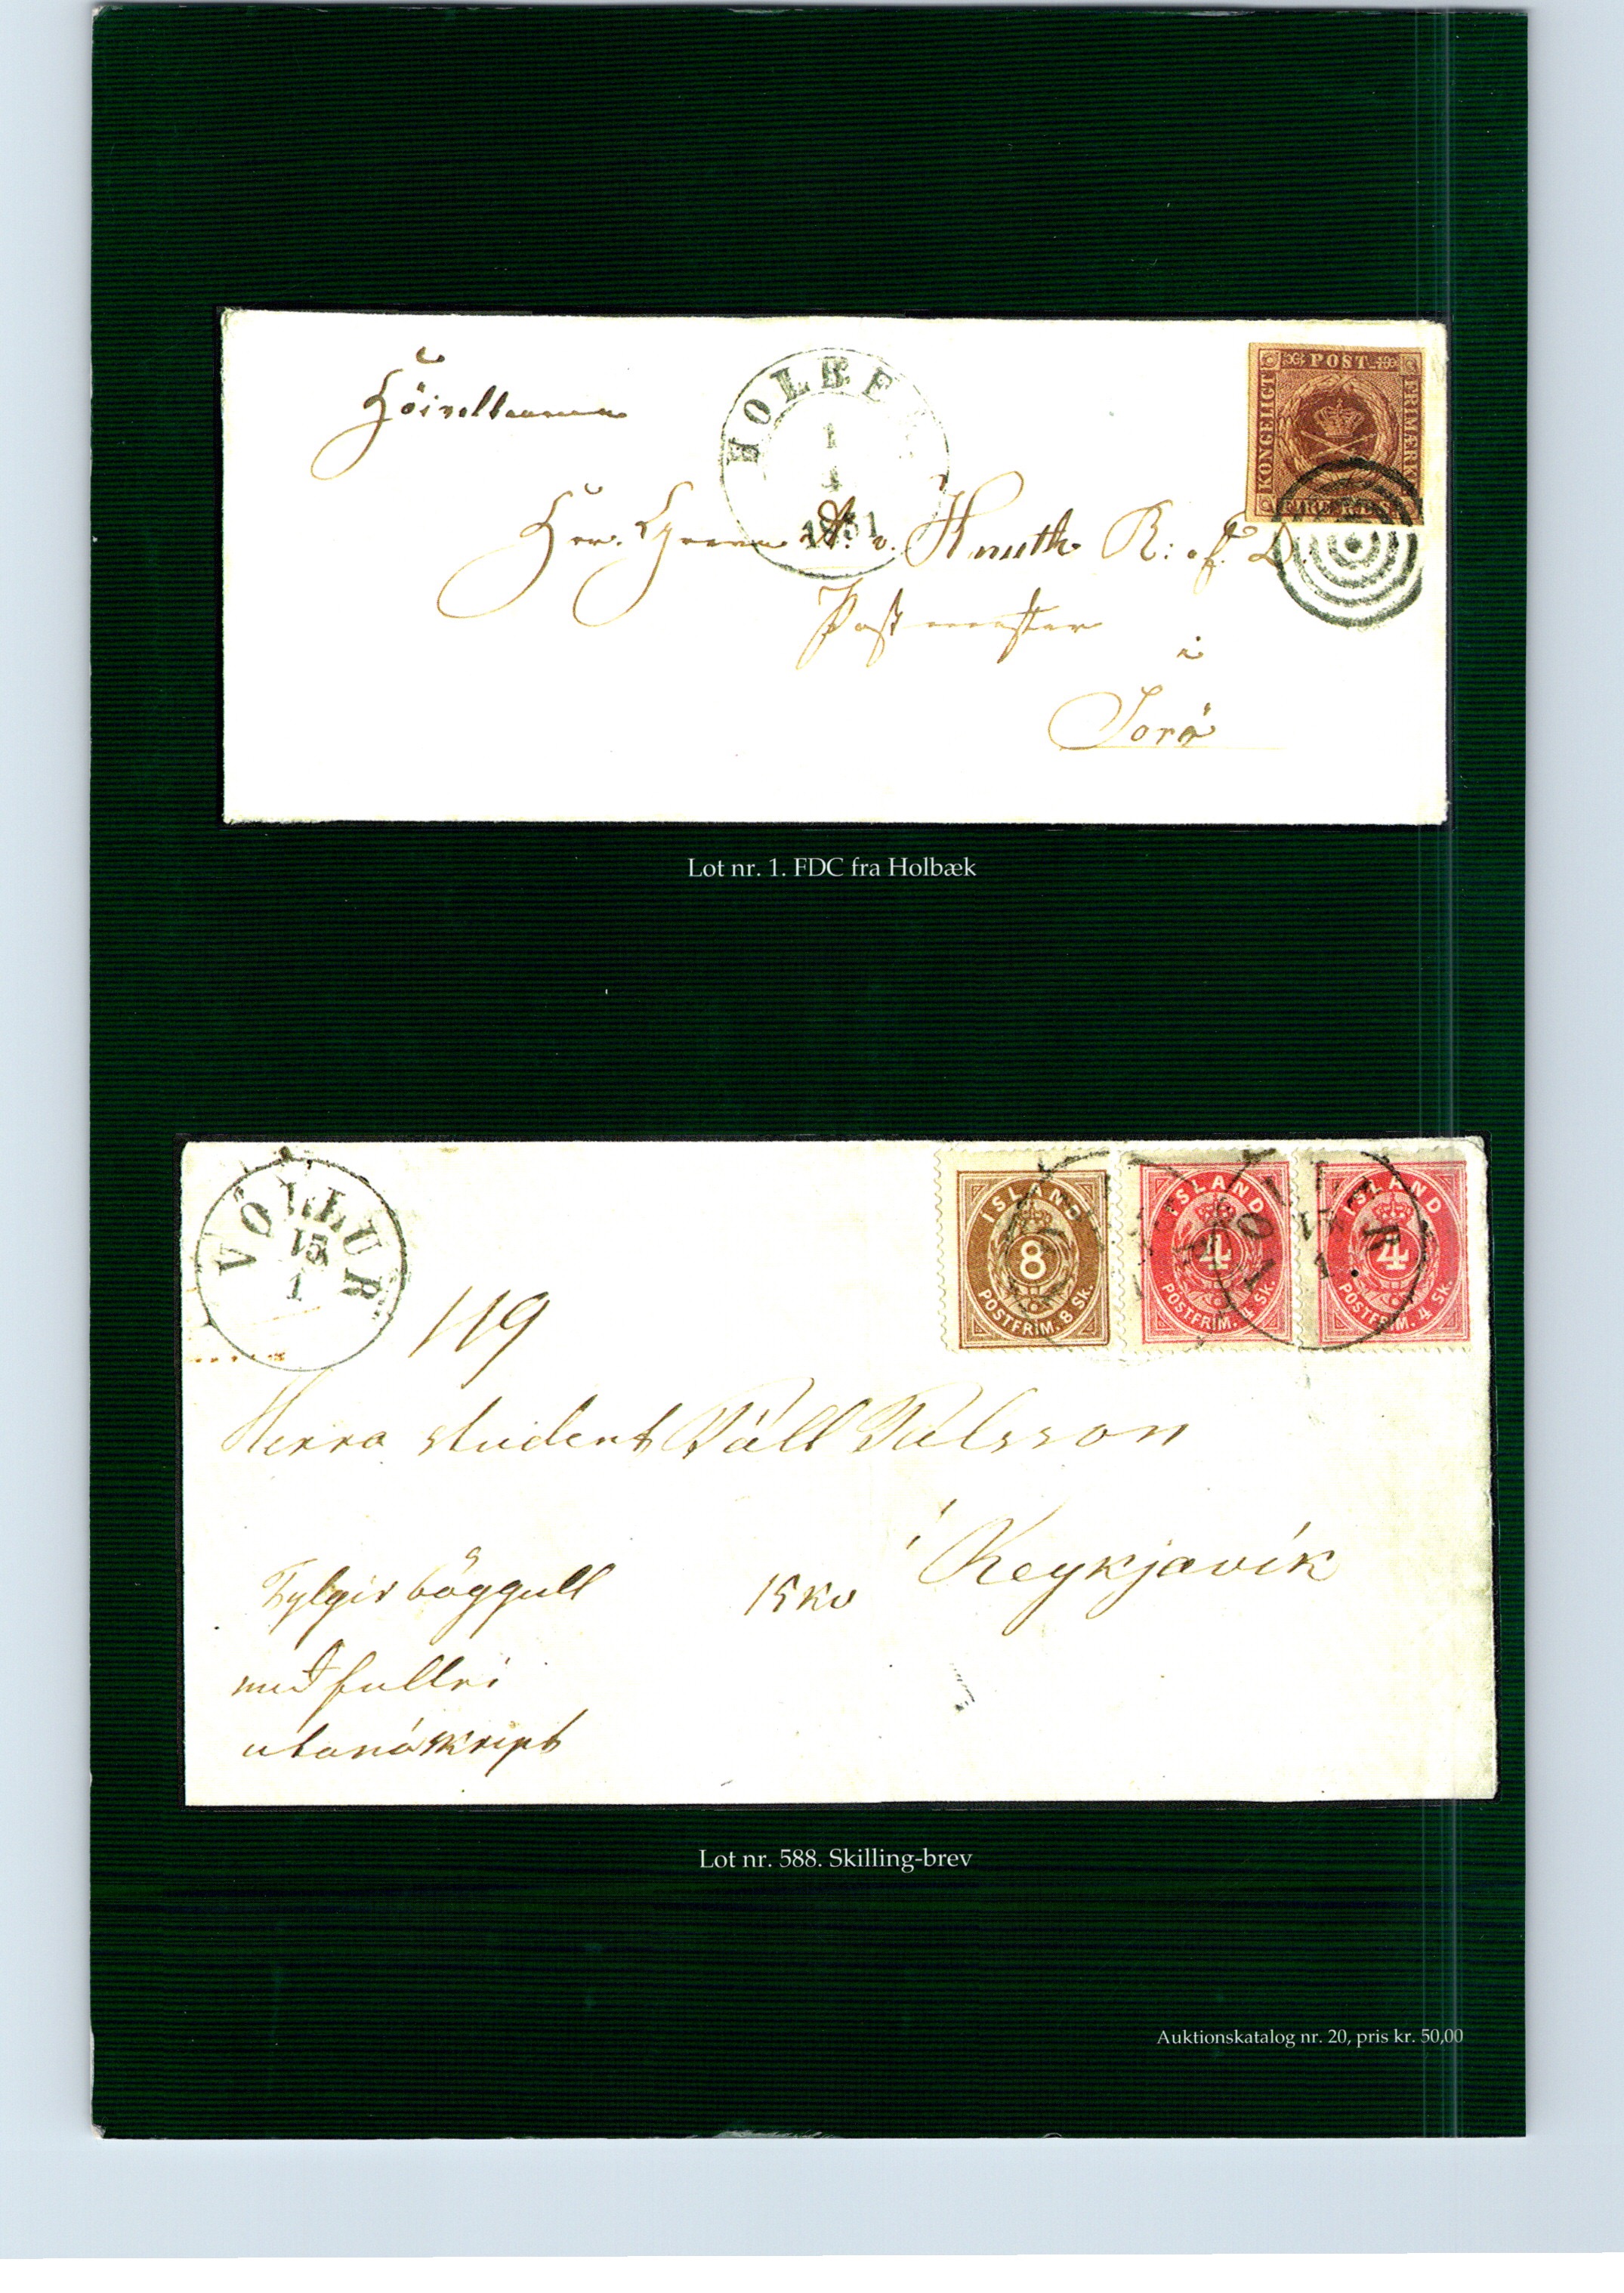 HOLBEK
1
4
1851
KONGELIGT POST FRIMÆRKE
FIRE R.B.S.
Herr Greve A. v. Knuth R: af D.
Postmester
i
Sorø
Lot nr. 1. FDC fra Holbæk
VÖLLUR
15
1
ISLAND
8
POSTFRIM. 8 SK.
ISLAND
4
POSTFRIM. 4 SK.
ISLAND
4
POSTFRIM. 4 SK.
VÖLLUR
119
Herra student Páll Pálsson
í Reykjavík
Fylgir böggull
15 Kv
með fullri
utanáskript
Lot nr. 588. Skilling-brev
Auktionskatalog nr. 20, pris kr. 50,00